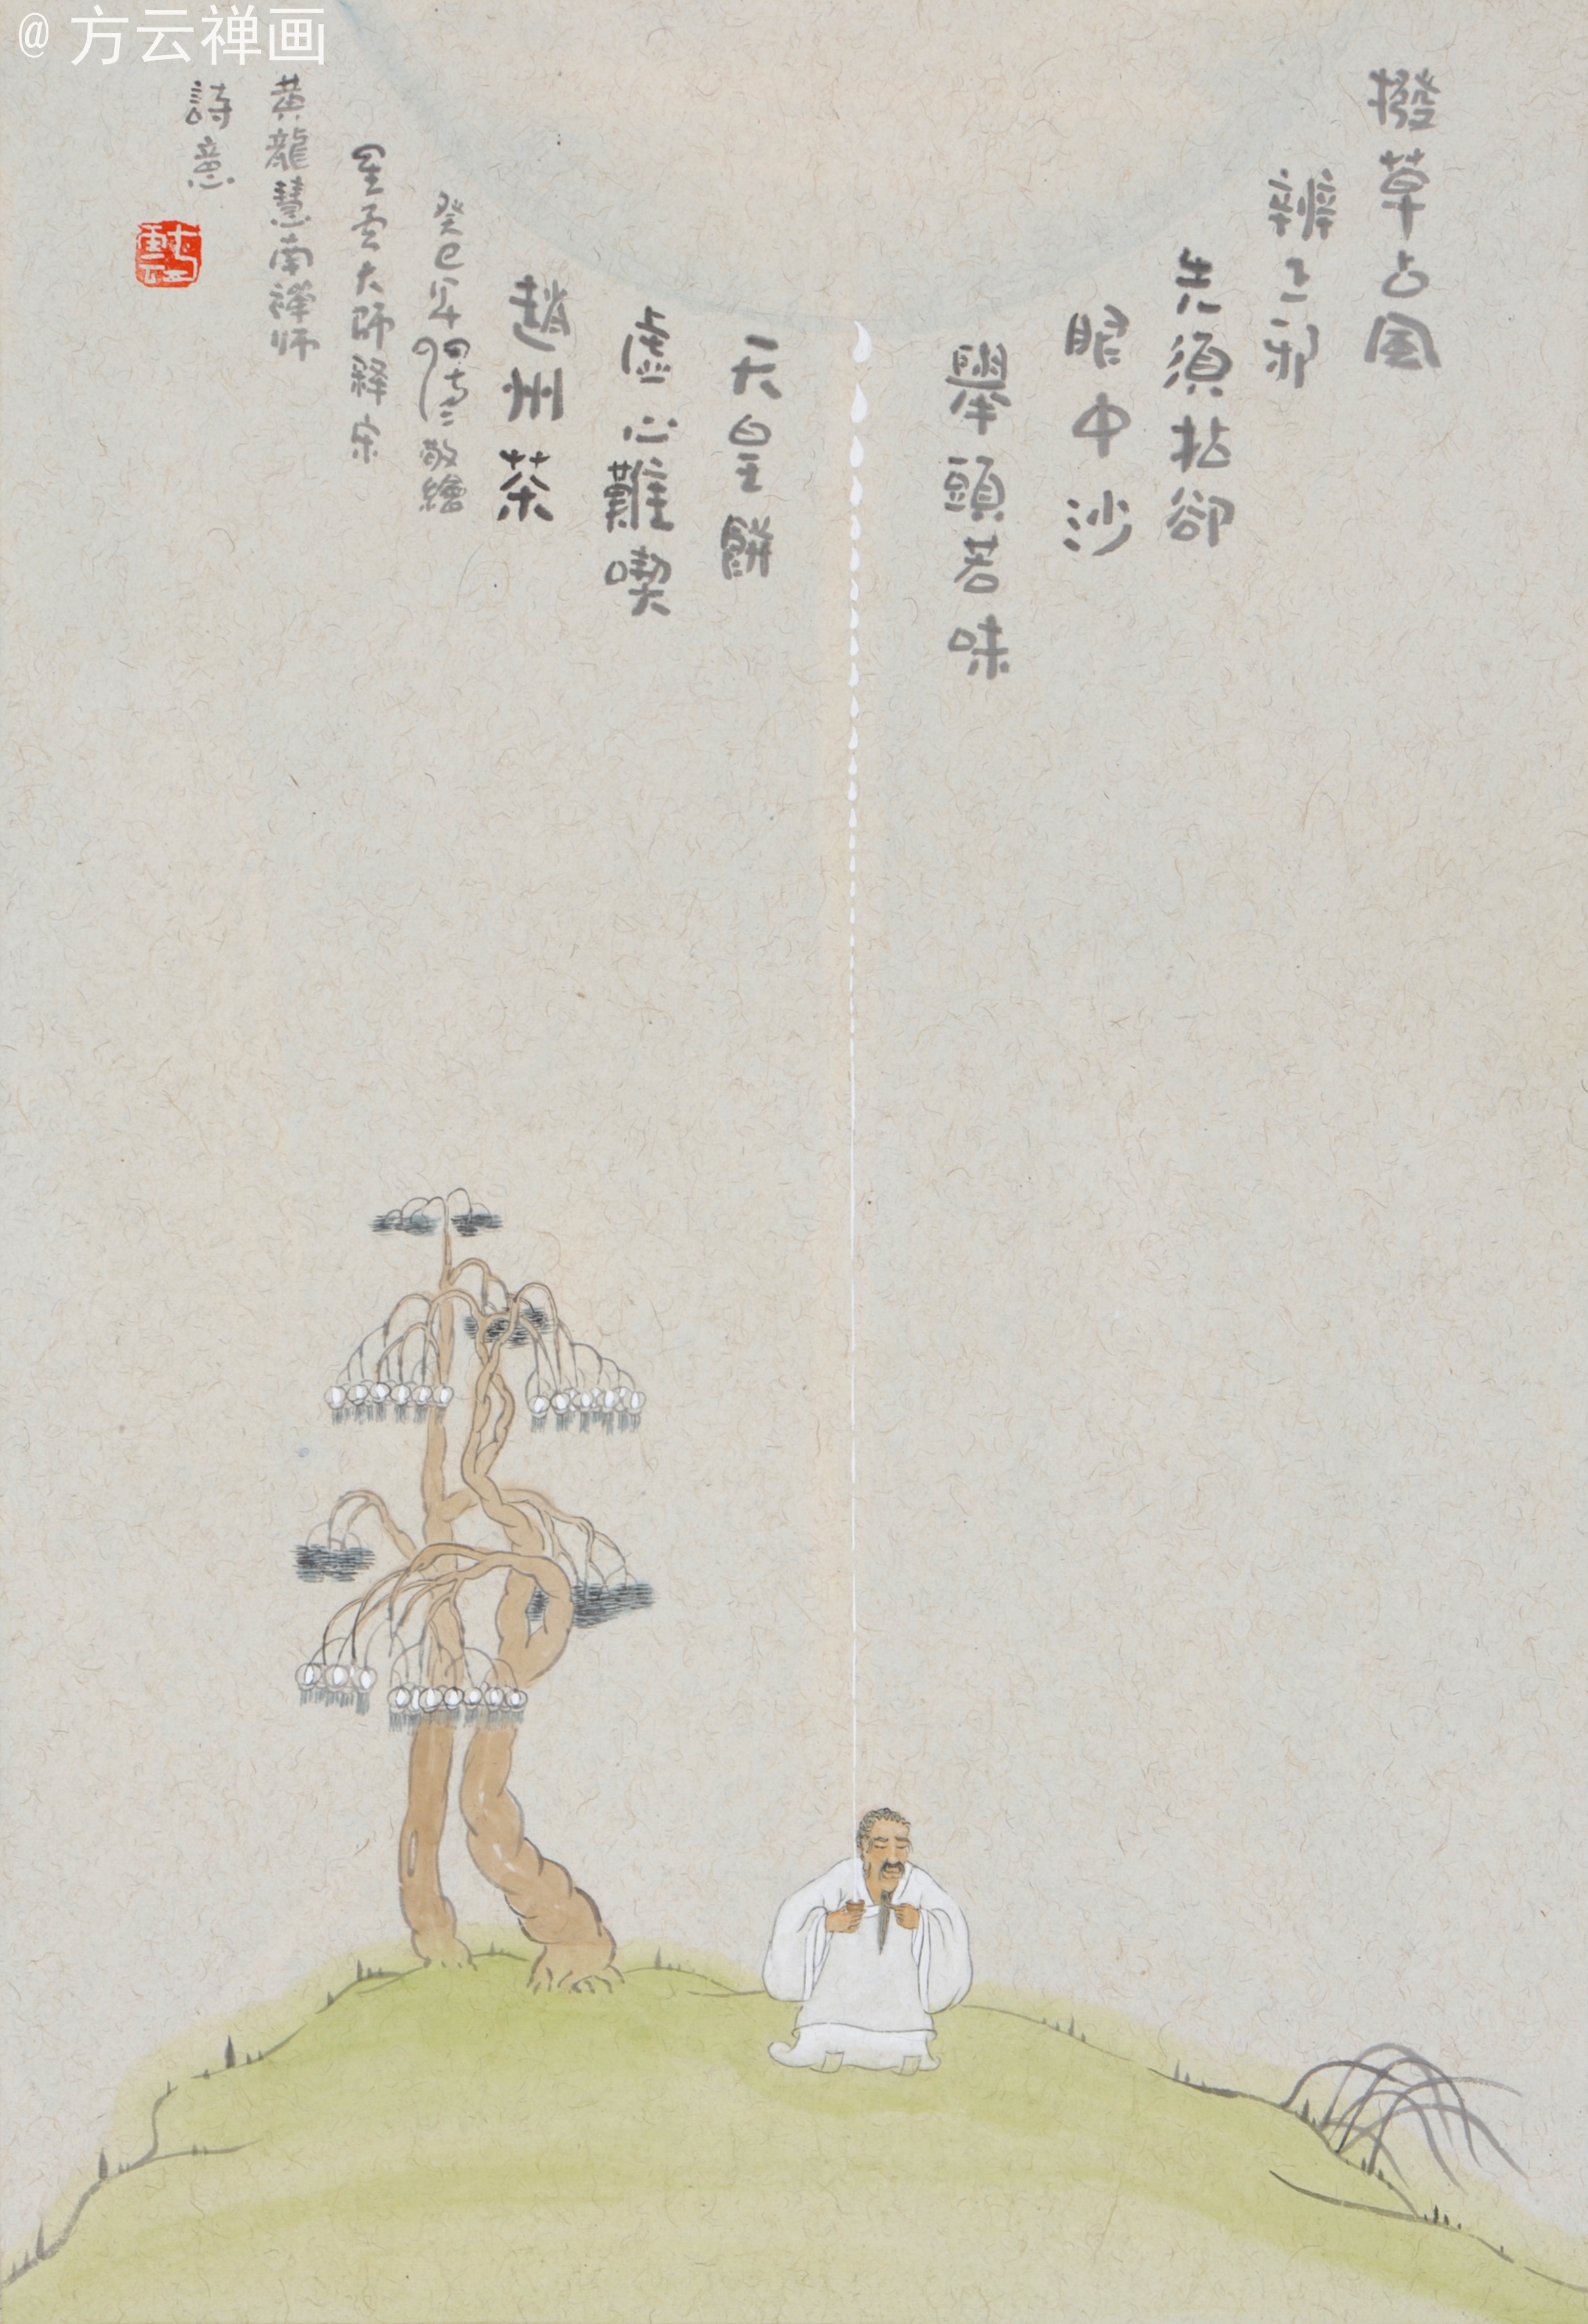 @方云禅画
撥草占風
辨正邪
先須拈卻
眼中沙
舉頭若味
天皇餅
虛心難喫
趙州茶
癸巳年 敬繪
星云大師釋宋
黃龍慧南禪师
詩意